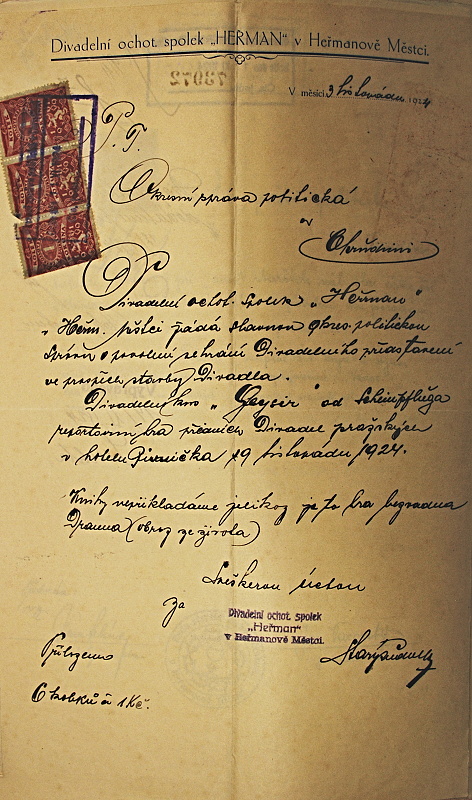 Divadelní ochot. spolek „HEŘMAN" v Heřmanově Městci.
V měsíci 3 listopadu 1924
P. T.
Okresní správa politická
v
Chrudimi
Divadelní ochot. spolek „Heřman"
v Heřm. Městci žádá slavnou okres. politickou
správu o povolení sehrání Divadelního představení
ve prospěch stavby Divadla.
Divadelní kus „Geysir" od Scheinpfluga
repertoirní hra předních Divadel pražských
v hotelu 19 listopadu 1924.
Knihy nepřikládáme jelikož je to hra bezvadná
Drama (obraz ze života)
Veškerou úctou
za
Divadelní ochot. spolek
„Heřman"
v Heřmanově Městci.
Přiloženo
6 kolků à 1 Kč.